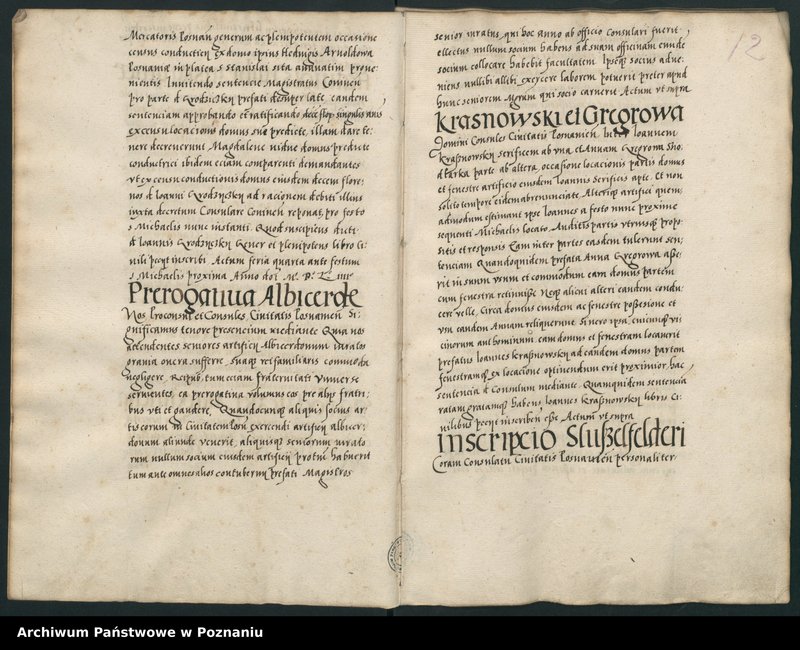 Mercatoris Posnan generum ac plempotentem occasione
census conductien ex domo ipsius Hedwigis Arnoldowa
Posnaniæ in platea s Stanislai sita annuatim prove-
nientis Innitendo sentencie Magistratus Comen
pro parte d Grodziczky prefati desuper late eandem
sentenciam approbando et ratificando de ce stop singulis annis
ex censu locacionis domus sue predicte, illam dare te:
nere decreverunt Magdalene vidue domus predicte
conductrici ibidem eciam comparenti demandantes
vt ex censu conductionis domus eiusdem decem flore:
nos d Ioanni Grodziczky ad racionem debiti illius
iuxta decretum Consulare Comen reponat, pro festo
s Michaelis nunc instanti. Quod suscipiens dicti
d Ioannis Grodziczky gener et plenipotens libro Ci:
vili petyt inscribi Actum feria quarta ante festum
s Michaelis proxima Anno doi M. D. L
Prerogatiua Albicerde
Nos Proconsul et Consules Civitatis Posnanien Si:
gnificamus tenore presencium mediante Quia nos
attendentes seniores artificij Albicerdonum iuratos
onera sufferre, suaque rei familiaris commoda
negligere Reipub. tum eciam fraternitati Vniverse
servientes, ea prerogativa volumus eos pre alijs fratri:
bus vti et gaudere, Quandocunque aliquis socius ar:
tis eorum in Civitatem Posn exercendi artificij albicer:
donum aliunde venerit, aliquisque seniorum iurato
rum nullum socium eiusdem artificij pro tunc habuerit
tum ante omnes alios contubernij prefati Magistros
12
senior iuratus, qui hoc anno ab officio Consulari fuerit
ellectus nullum socium habens ad suam officinam eunde
socium collocare habebit facultatem Ipseque socius adue:
niens nullibi allibi exercere laborem potuerit preter apud
hunc seniorem Mgrum qui socio caruerit Actum vt supra
Krasnowski et Gregorowa
Domini Consules Civitatis Posnanien Inter Ioannem
Krasnowsky serificem ab vna et Annam Gregorowa Sho
dkarka parte ab altera, occasione locacionis partis domus
et fenestre artificio eiusdem Ioannis Serificis apte, Et non
solito tempore eidem abrenunciate, Alterique artifici quem:
admodum estimant ipse Ioannes a festo nunc proxime
sequenti Michaelis locato Auditis partis vtriusque propo:
sitis et responsis Eam inter partes easdem tulerunt sen:
tenciam Quandoquidem prefata Anna Gregorowa asse:
rit in suum vsum et commodum eam domus partem
cum fenestra retinuisse Neque alicui alteri eandem condu:
cere velle, Circa domus eiusdem ac fenestre possessione et
vsu eandem Annam reliquerunt. Si vero ipsa, cuicunque vi:
cinorum aut hominum, eam domus et fenestram locaverit
prefatus Ioannes Krasnowsky ad eandem domus partem
fenestramque ex locacione optinendum erit proximior, hac
sentencia d Consulum mediante. Quamquidem sentencia
ratam gratamque habens Ioannes Krasnowsky libris Ci:
vilibus petyt inscriben esse Actum vt supra
Inscripcio Slußelfelderi
Coram Consulatu Civitatis Posnanien personaliter
Archiwum Państwowe w Poznaniu